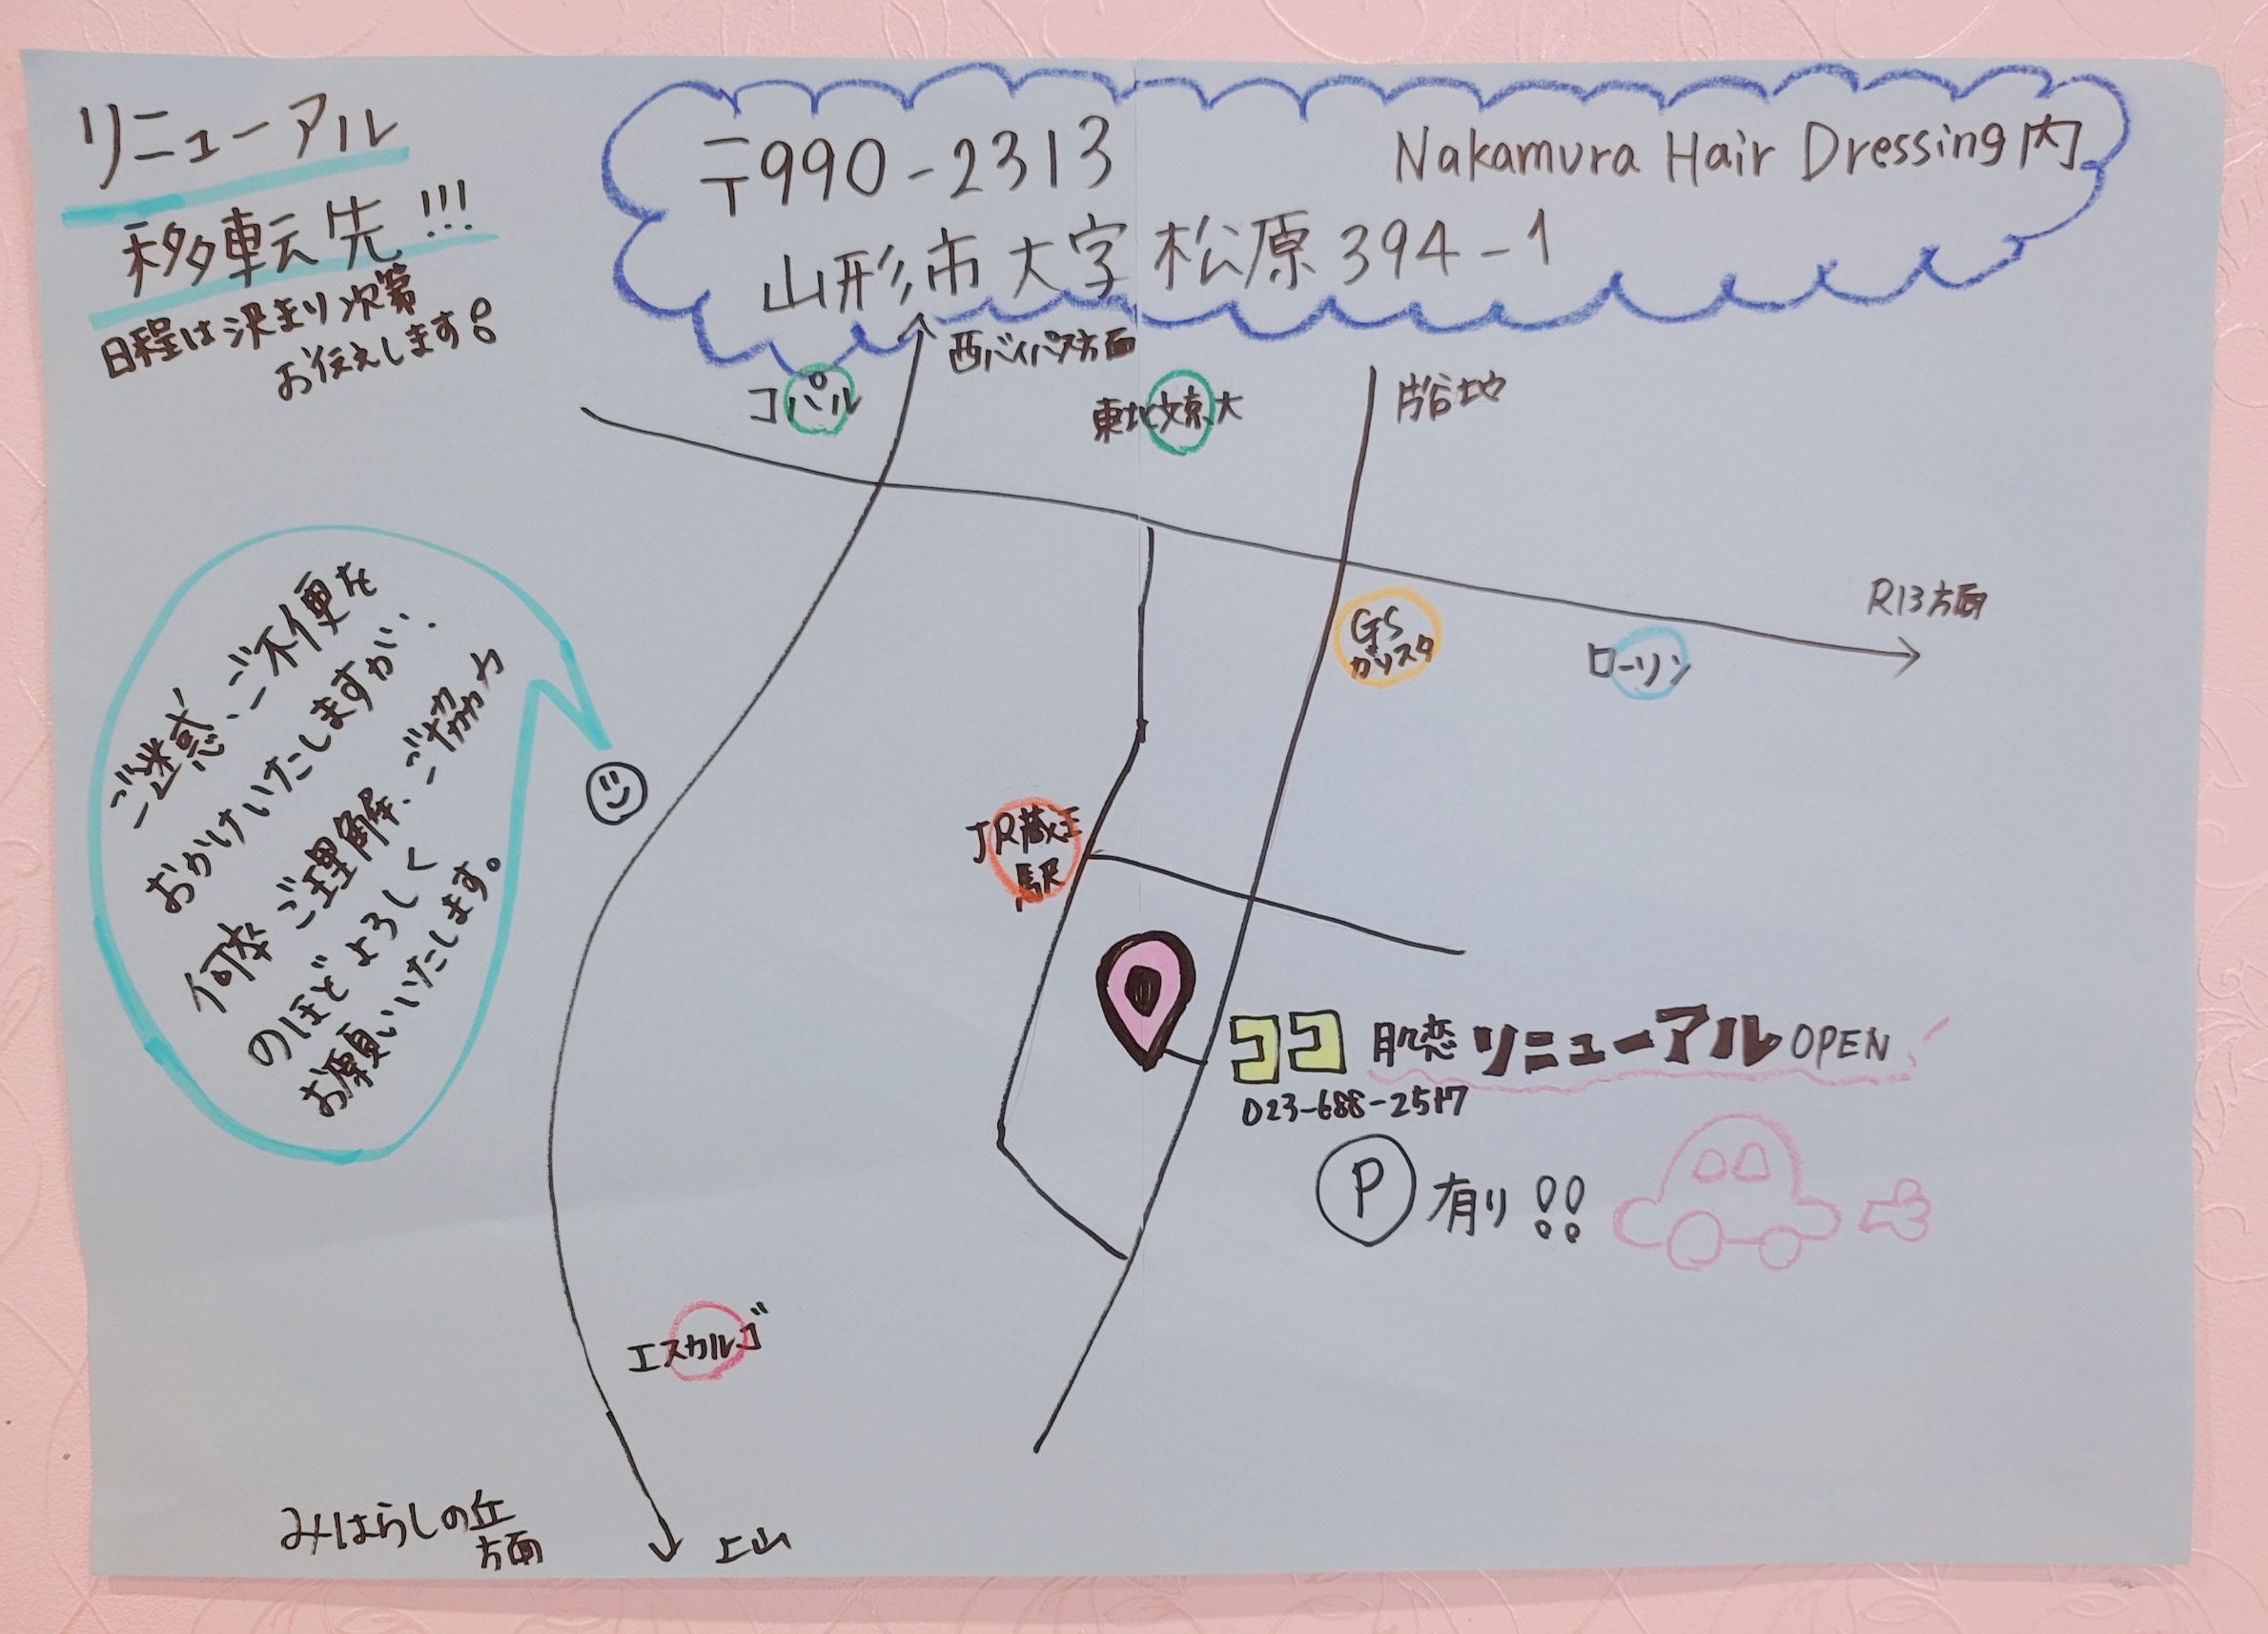 リニューアル
移転先!!!
日程は決まり次第
お伝えします!
〒990-2313
Nakamura Hair Dressing内
山形市大字松原394-1
西バイパス方面
コパル
東北文京大
片谷地
R13方面
GS
ガソスタ
ローソン
ご迷惑、ご不便を
おかけいたしますが、
何卒ご理解、ご協力
のほどよろしく
お願いいたします。
JR蔵王
駅
ココ 肌恋 リニューアルOPEN!
023-688-2517
P 有り!!
エスカルゴ
みはらしの丘
方面
上山